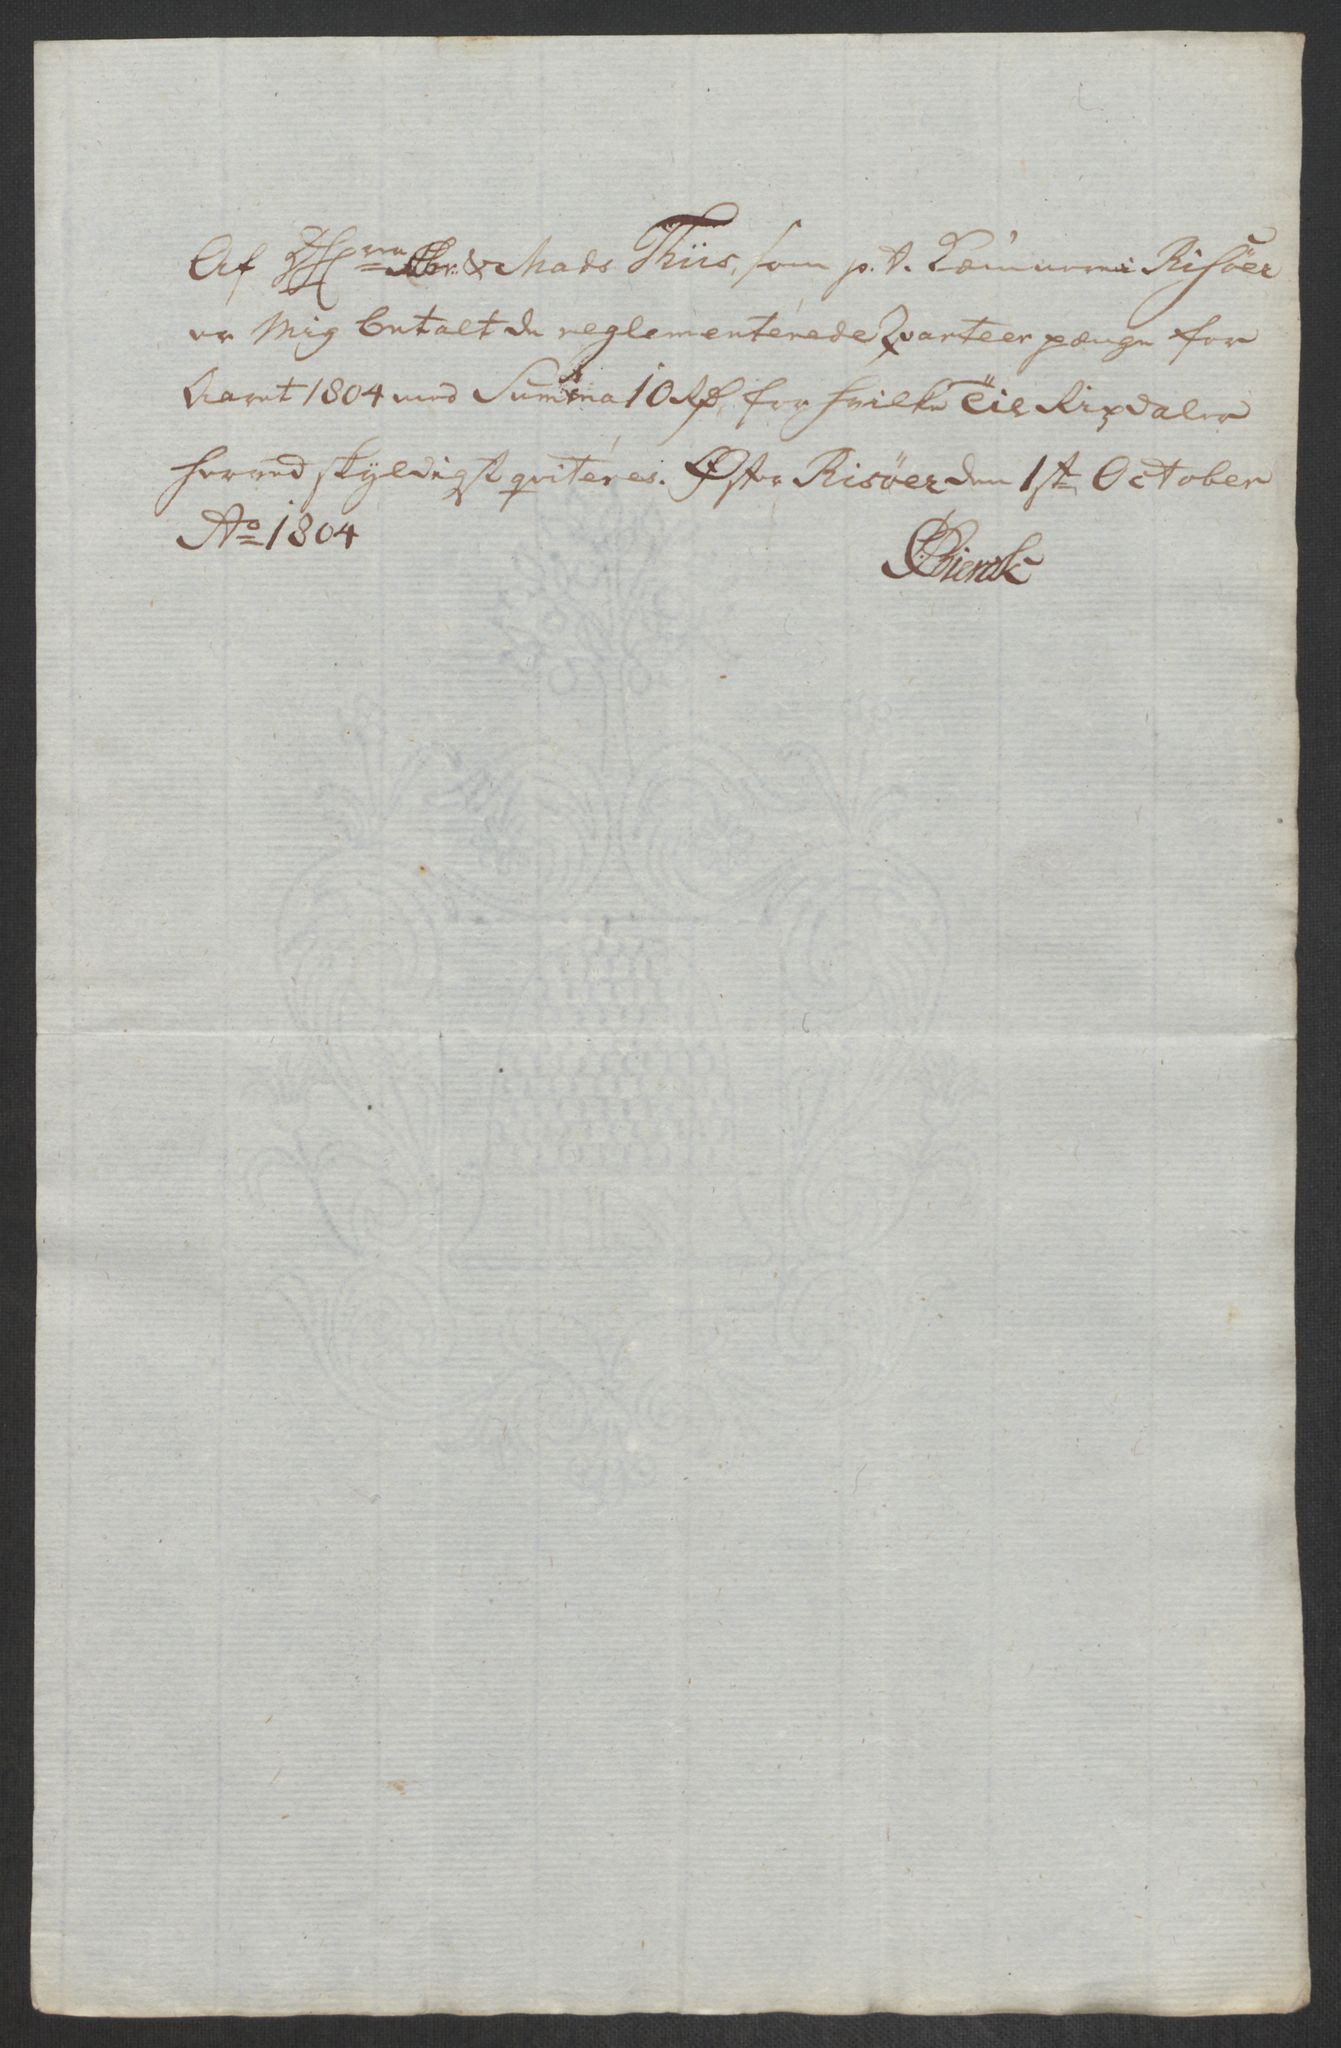 Af HHrrn Abr: & Mads Thiis, som p. t. Kæmnere i Risöer
er Mig betalt de reglementerede Qvarteer pænge for
Aaret 1804 med Summa 10 Rd, for hvilke Tie Rixdaler
herved skyldigst qviteres. Øster Risöer den 1ste October
Ao 1804